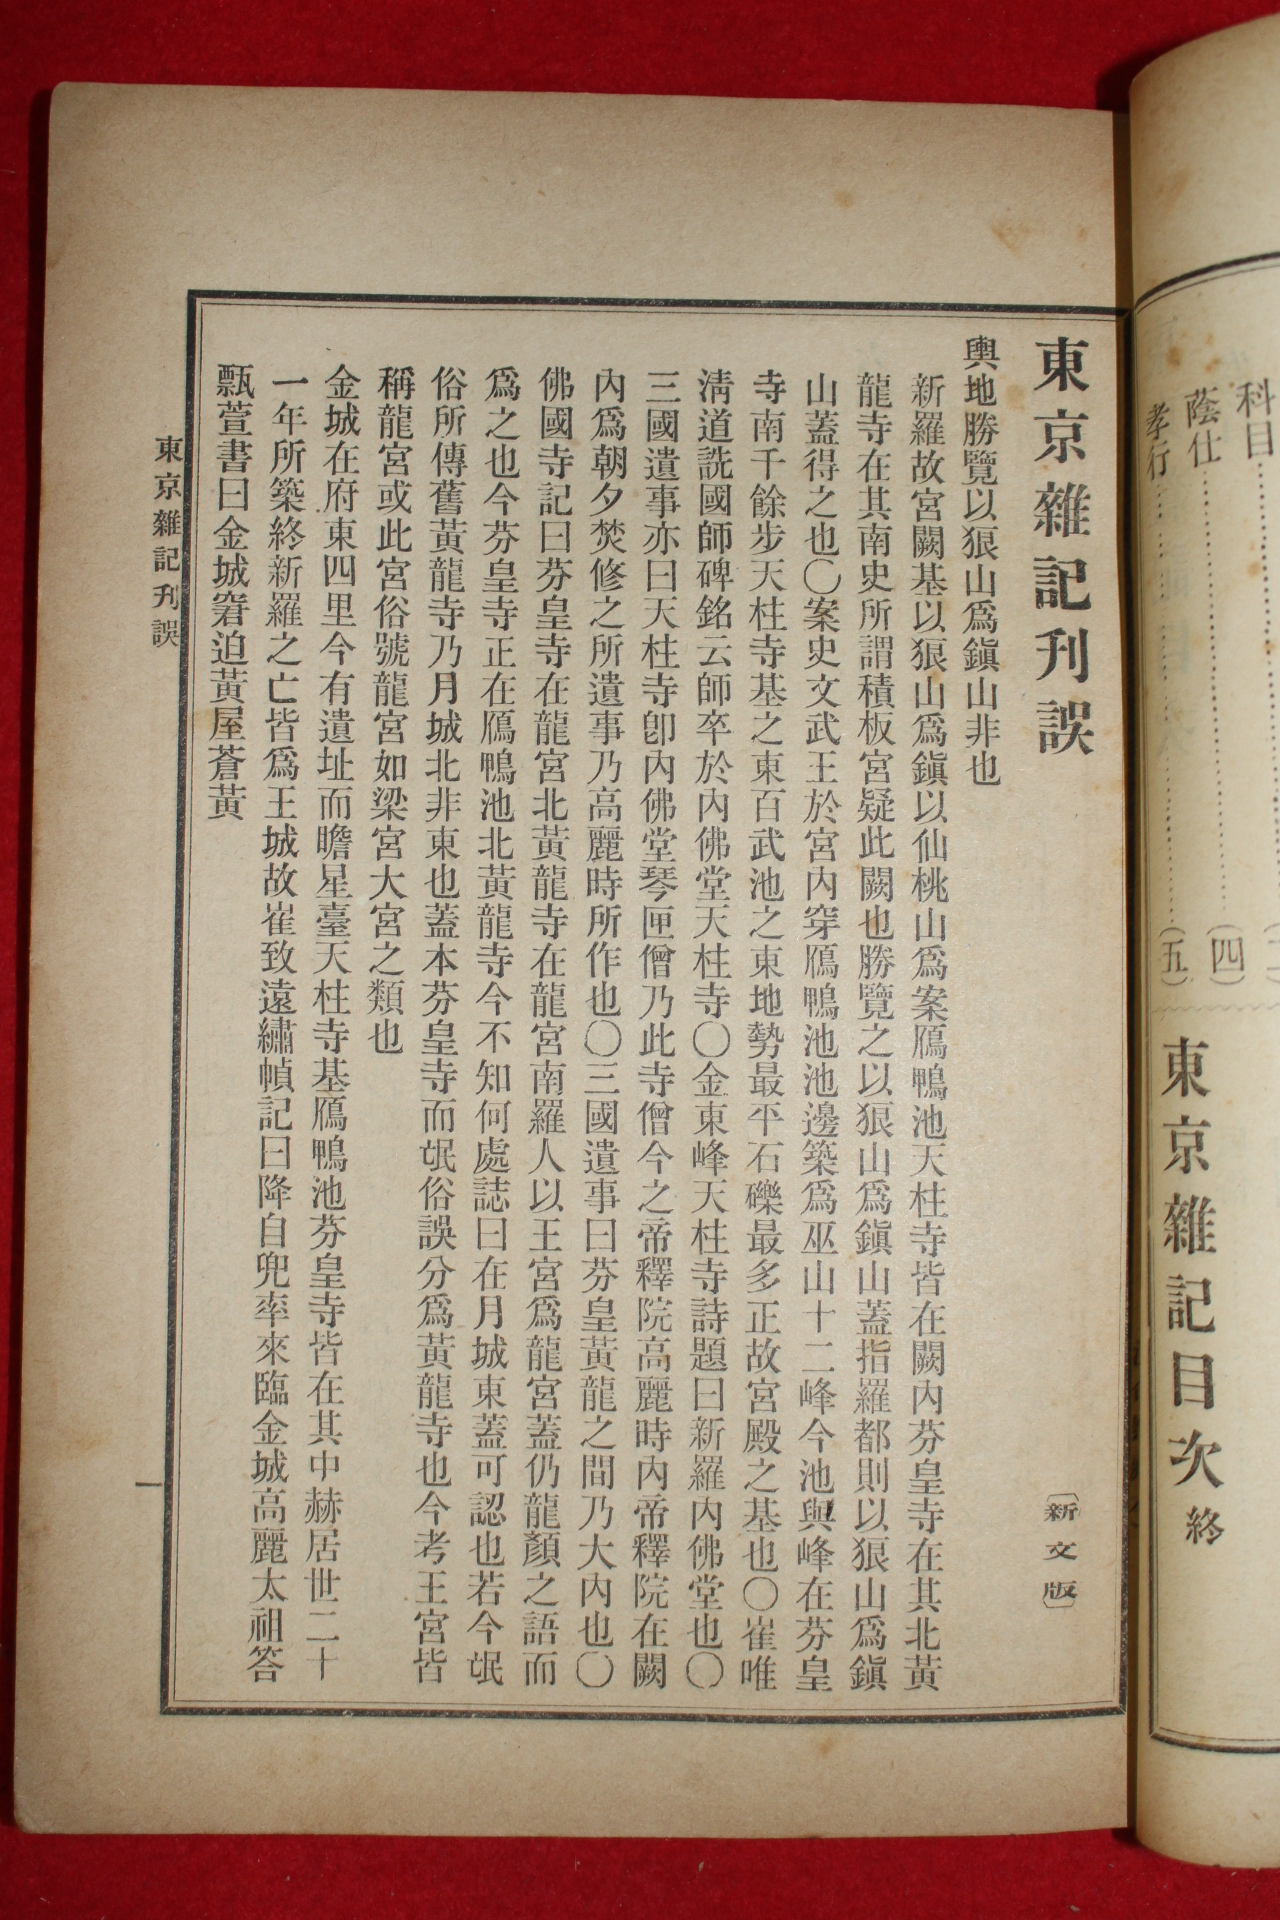 科目
蔭仕 (四)
孝行 (五)
東京雜記目次 終
東京雜記刊誤
(新文版)
輿地勝覽以狼山爲鎭山非也
新羅故宮闕基以狼山爲鎭以仙桃山爲案鴈鴨池天柱寺皆在闕內芬皇寺在其北黃
龍寺在其南史所謂積板宮疑此闕也勝覽之以狼山爲鎭山蓋指羅都則以狼山爲鎭
山蓋得之也〇案史文武王於宮內穿鴈鴨池池邊築爲巫山十二峰今池與峰在芬皇
寺南千餘步天柱寺基之東百武池之東地勢最平石礫最多正故宮殿之基也〇崔唯
淸道詵國師碑銘云師卒於內佛堂天柱寺〇金東峰天柱寺詩題曰新羅內佛堂也〇
三國遺事亦曰天柱寺卽內佛堂琴匣僧乃此寺僧今之帝釋院高麗時內帝釋院在闕
內爲朝夕焚修之所遺事乃高麗時所作也〇三國遺事曰芬皇黃龍之間乃大內也〇
佛國寺記曰芬皇寺在龍宮北黃龍寺在龍宮南羅人以王宮爲龍宮蓋仍龍顏之語而
爲之也今芬皇寺正在鴈鴨池北黃龍寺今不知何處誌曰在月城東蓋可認也若今氓
俗所傳舊黃龍寺乃月城北非東也蓋本芬皇寺而氓俗誤分爲黃龍寺也今考王宮皆
稱龍宮或此宮俗號龍宮如梁宮大宮之類也
金城在府東四里今有遺址而瞻星臺天柱寺基鴈鴨池芬皇寺皆在其中赫居世二十
一年所築終新羅之亡皆爲王城故崔致遠繡幀記曰降自兜率來臨金城高麗太祖答
甄萱書曰金城窘迫黃屋蒼黃
東京雜記刊誤
一